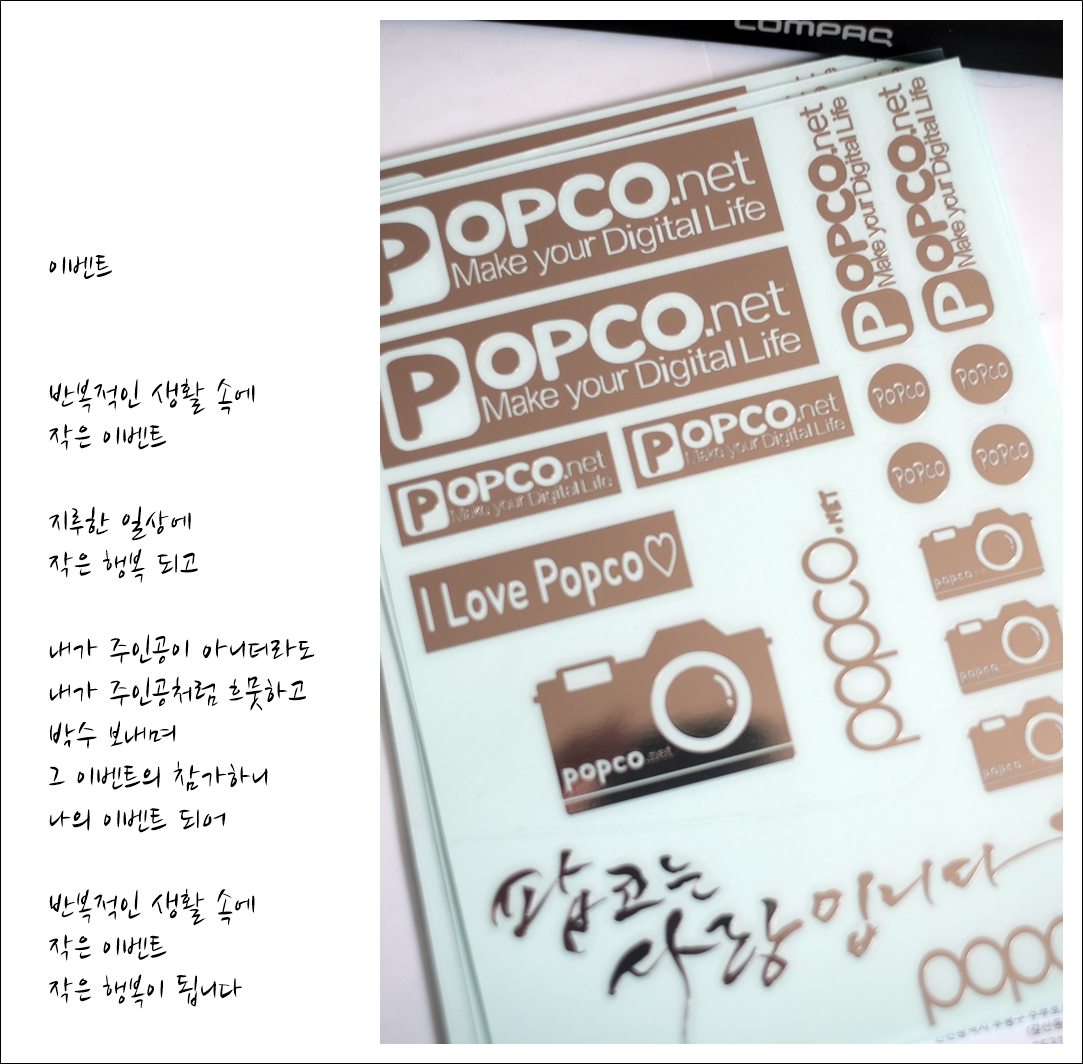 이벤트
반복적인 생활 속에
작은 이벤트
지루한 일상에
작은 행복 되고
내가 주인공이 아니더라도
내가 주인공처럼 흐뭇하고
박수 보내며
그 이벤트의 참가하니
나의 이벤트 되어
반복적인 생활 속에
작은 이벤트
작은 행복이 됩니다
COMPAQ
POPCO.net
Make your Digital Life
POPCO.net
Make your Digital Life
POPCO.net
Make your Digital Life
POPCO.net
Make your Digital Life
POPCO.net
Make your Digital Life
POPCO.net
Make your Digital Life
POPCO
POPCO
POPCO
POPCO
I Love Popco♡
popco.NET
popco
popco
popco
popco.net
팝코는
사랑입니다
popc